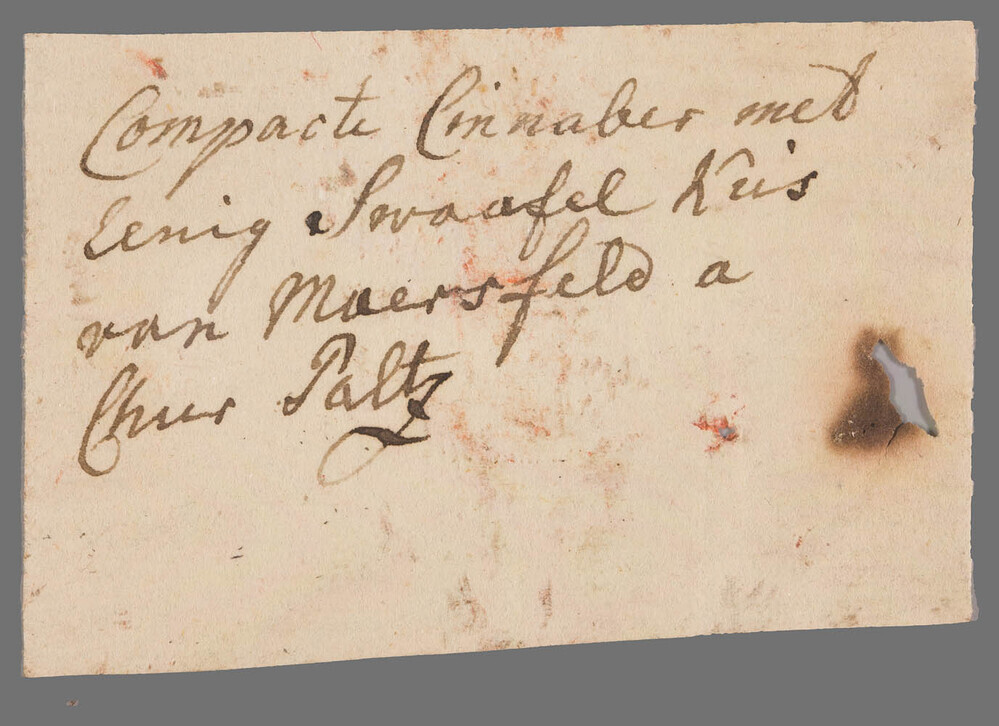 Compacte Cinnaber met
Eenig Swaafel Kies
van Maersfeld a
Chur Paltz